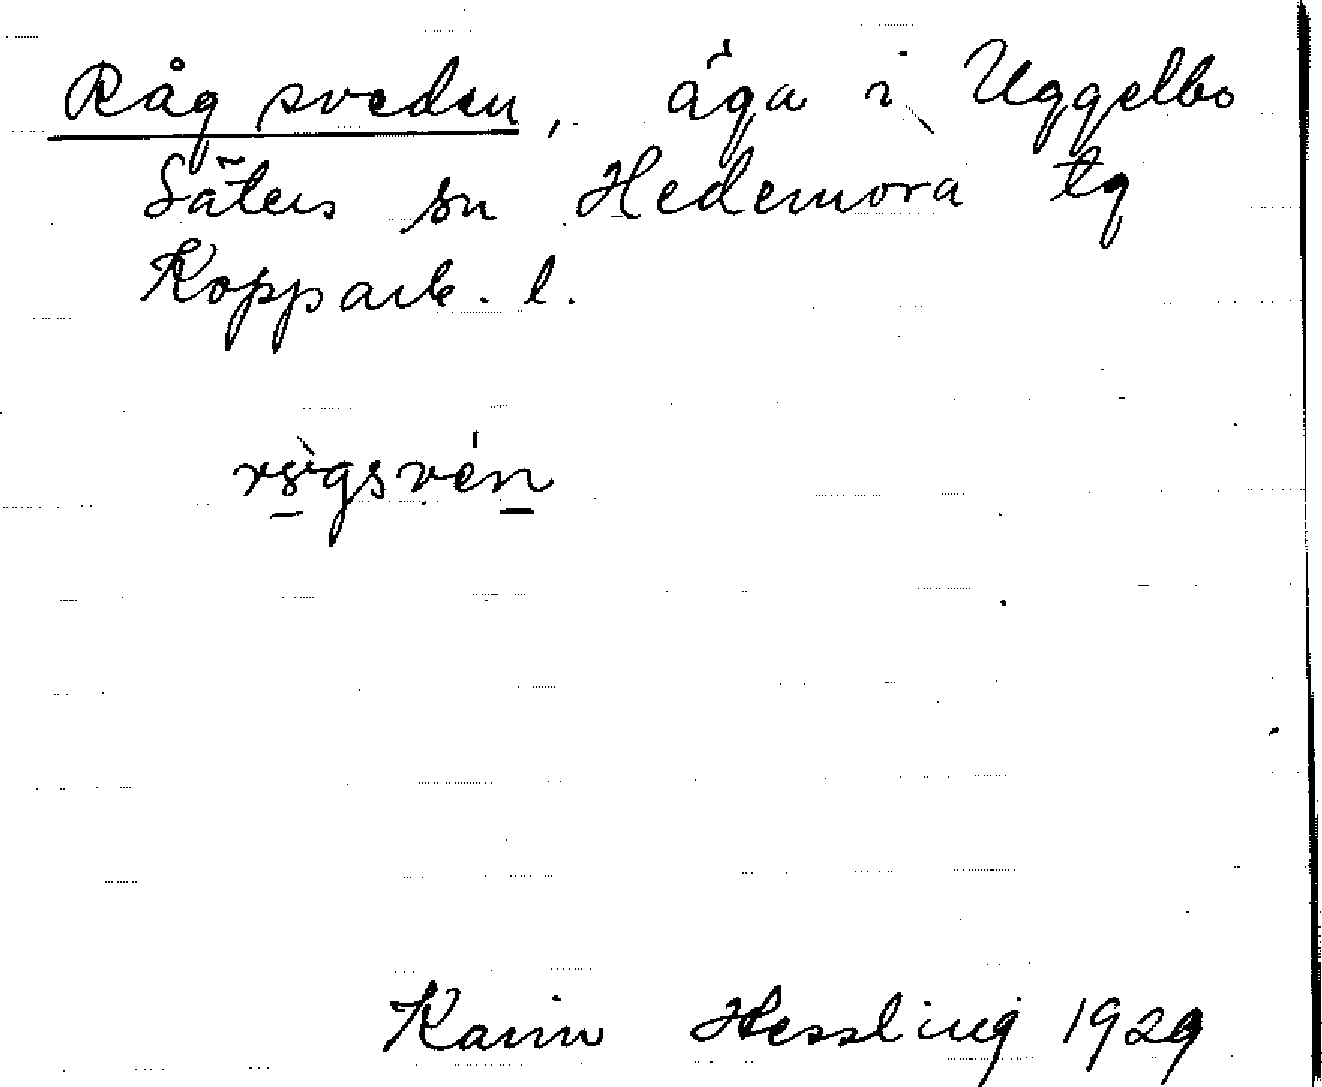 Rågsveden, äga i Uggelbo
Säters sn Hedemora tg
Kopparb. l.
Karin Hessling 1929